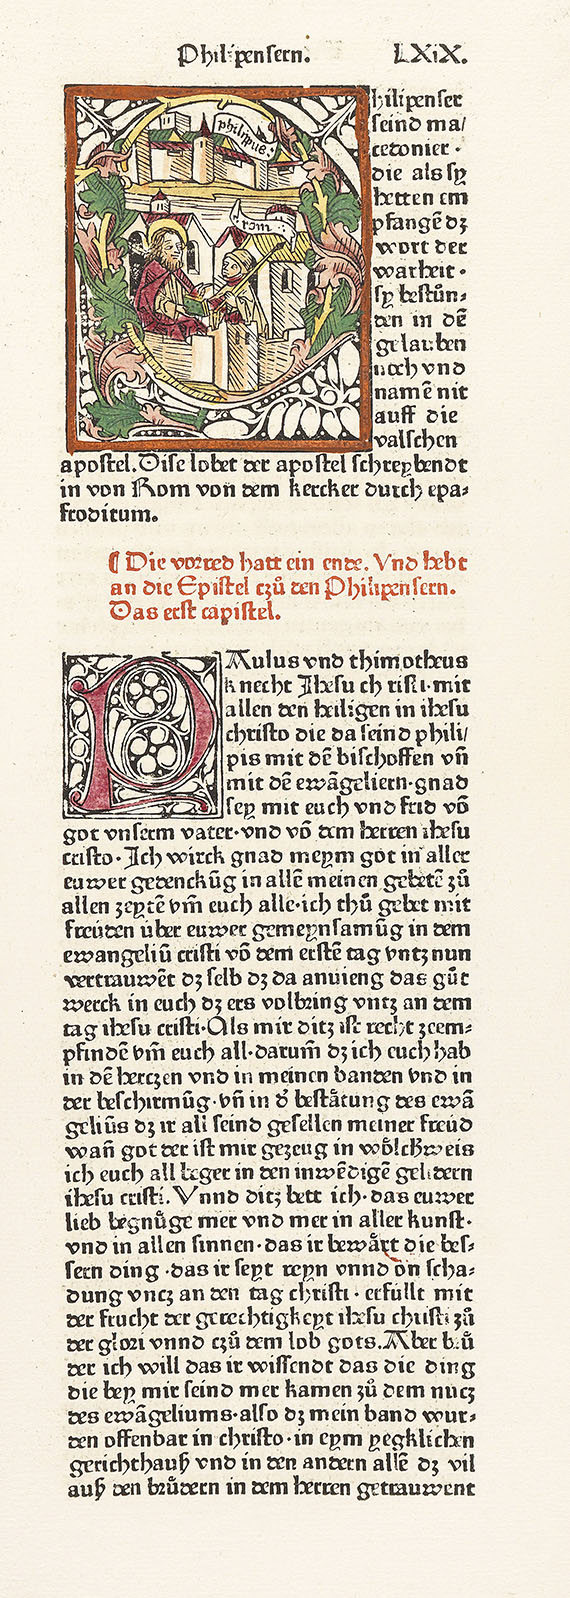 Philipenſern. LXiX.
philipus.
rom
hilipenſer
ſeind ma/
cedonier ·
die als ſy
hetten em
pfangē dz
wort der
warheit ·
ſy beſtůn⸗
den in dē
gelauben
noch vnd
namē nit
auff die
valſchen
apoſtel. Diſe lobet der apoſtel ſchreybendt
in von Rom von dem kercker durch epa⸗
froditum.
¶ Die vorred hatt ein ende. Vnd hebt
an die Epiſtel czů den Philipenſern.
Das erſt capiſtel.
PAulus vnd thimotheus
knecht Iheſu ch riſti · mit
allen den heiligen in iheſu
chriſto die da ſeind phili/
pis mit dē biſchoffen vn̄
mit dē ewāgeliern · gnad
ſey mit euch vnd frid vō
got vnſerm vater · vnd vō dem herren iheſu
criſto · Ich wirck gnad meym got in aller
euwer gedenckūg in allē meinen gebetē zů
allen zeytē vm̄ euch alle · ich thů gebet mit
freüden über euwer gemeynſamūg in dem
ewangeliū criſti vō dem erſtē tag vntz nun
vertrauwēt dz ſelb dz da anuieng das gůt
werck in euch dz ers volbring vntz an dem
tag iheſu criſti · Als mir ditz iſt recht zeem⸗
pfindē vm̄ euch all · darum̄ dz ich euch hab
in dē herczen vnd in meinen banden vnd in
der beſchirmūg · vn̄ in d̓ beſtåtung des ewā
geliūs dz ir all ſeind geſellen meiner freüd
wan̄ got der iſt mir gezeug in wȯlchweis
ich euch all beger in den inwēdigē gelidern
iheſu criſti. Vnnd ditz bett ich · das euwer
lieb begnůge mer vnd mer in aller kunſt ·
vnd in allen ſinnen · das ir bewårt die beſ⸗
ſern ding · das ir ſeyt reyn vnnd on ſcha⸗
dung vncz an den tag chriſti · erfüllt mit
der frucht der gerechtigkeyt iheſu chriſti zů
der glori vnnd czů dem lob gots. Aber brů
der ich will das ir wiſſendt das die ding
die bey mir ſeind mer kamen zů dem nucz
des ewāgeliums · alſo dz mein band wur⸗
den offenbar in chriſto · in eym yegklichen
gerichthauß vnd in den andern allē dz vil
auß den brůdern in dem herren getrauwent